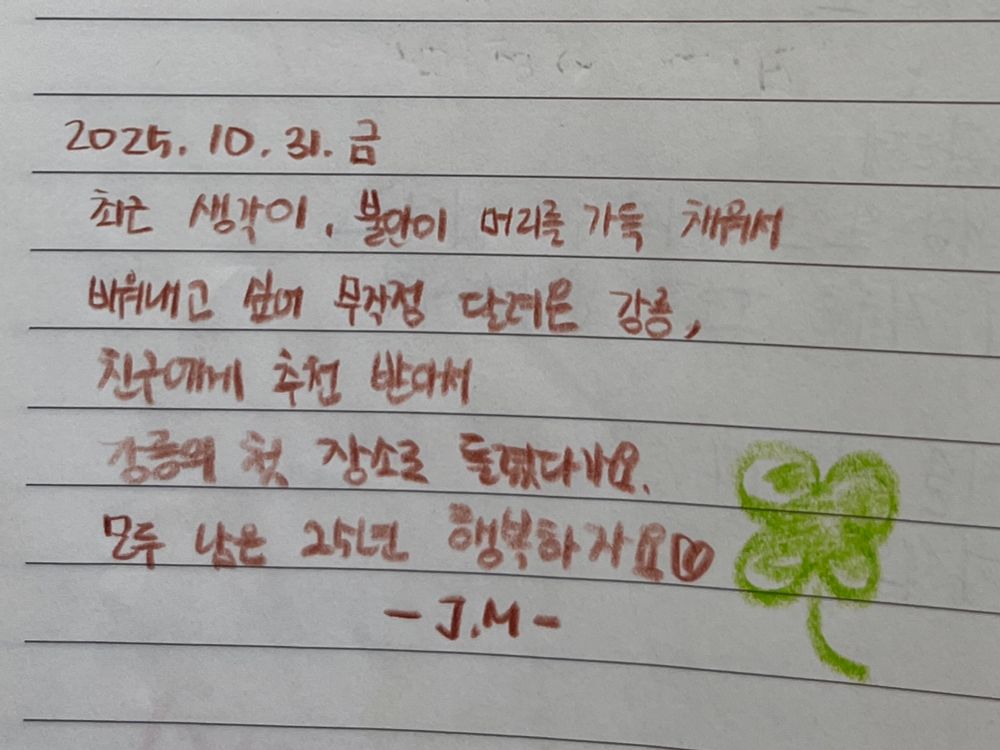 2025. 10. 31. 금
최근 생각이, 불안이 머리를 가득 채워서
비워내고 싶어 무작정 달려온 강릉,
친구에게 추천 받아서
강릉의 첫 장소로 들렸다가요.
모두 남은 25년 행복하자요♡
- J.M -